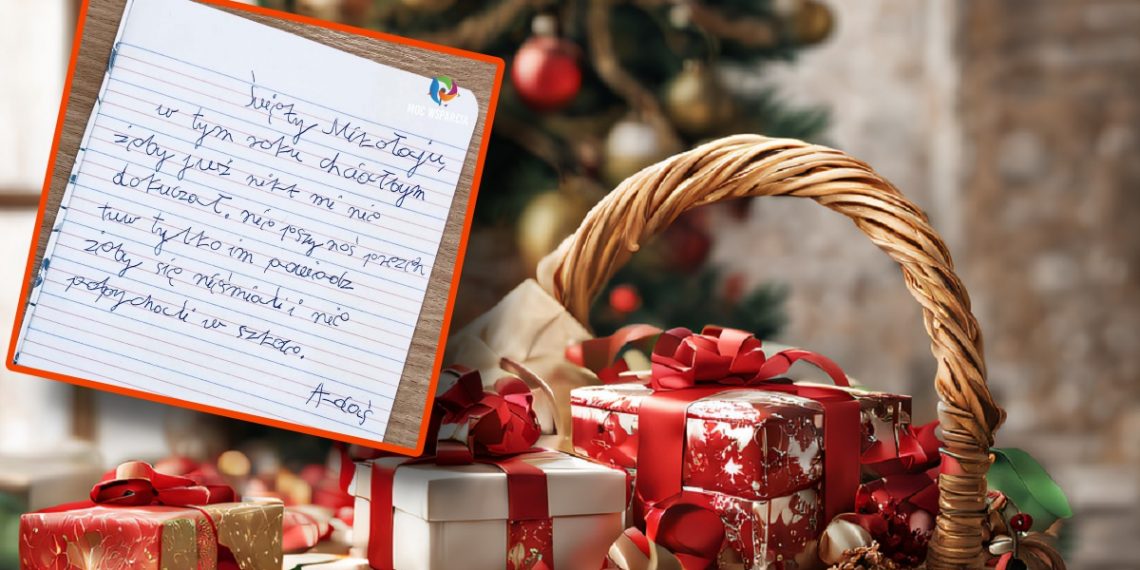 MOC WSPARCIA
Święty Mikołaju,
w tym roku chciałbym
żeby już nikt mi nie
dokuczał. nie pszynoś prezen
tuw tylko im powiedz
żeby się nieśmiali i nie
popychali w szkole.
Adaś